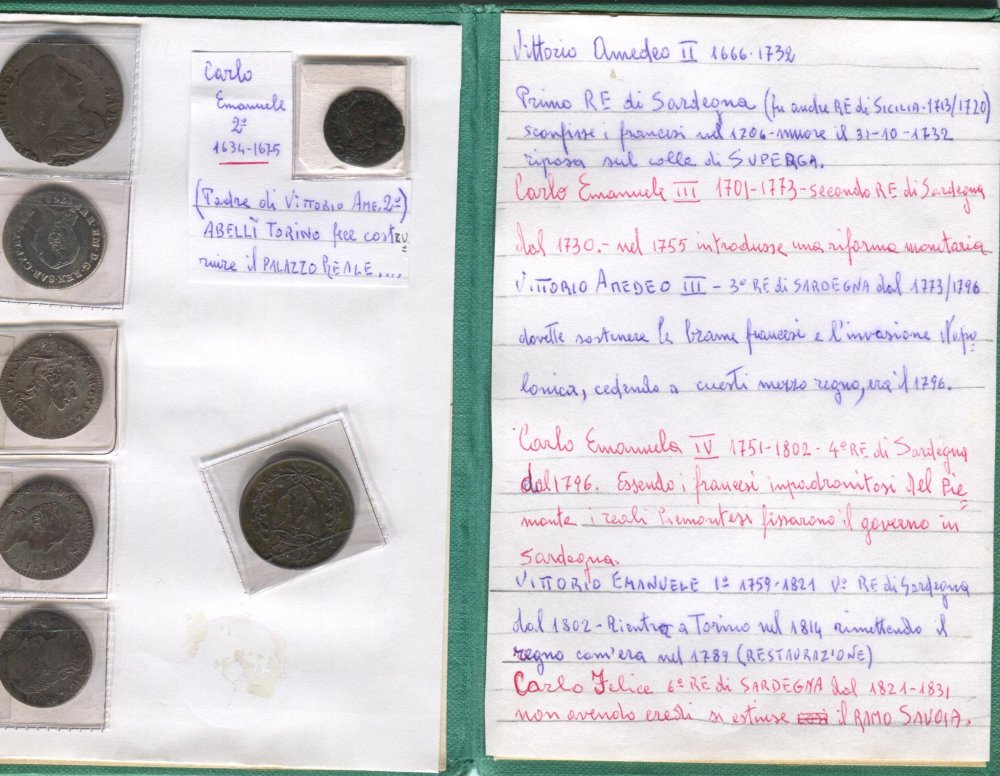 Carlo
Emanuele
2º
1634-1675
(Padre di VITTORIO AME. 2º)
ABELLÌ TORINO fece costru
ruire il PALAZZO REALE....
Vittorio Amedeo II 1666-1732
Primo RE di Sardegna (fu anche RE di SICILIA-1713/1720)
sconfisse i francesi nel 1706-muore il 31-10-1732
riposa sul colle di SUPERGA.
Carlo Emanuele III 1701-1773-secondo RE di Sardegna
dal 1730.- nel 1755 introdusse una riforma monetaria
VITTORIO AMEDEO III - 3º RE di SARDEGNA dal 1773/1796
dovette sostenere le brame francesi e l'invasione Napo
leonica, cedendo a questi mezzo regno, era il 1796.
Carlo Emanuele IV 1751-1802-4º RE di Sardegna
dal 1796. Essendo i francesi impadronitosi del Pie=
monte i reali Piemontesi fissarono il governo in
Sardegna.
VITTORIO EMANUELE 1º 1759-1821 Vº RE di Sardegna
dal 1802-Rientrò a Torino nel 1814 rimettendo il
regno com'era nel 1789 (RESTAURAZIONE)
Carlo Felice 6º RE di SARDEGNA dal 1821-1831
non avendo eredi si estinse il RAMO SAVOIA.